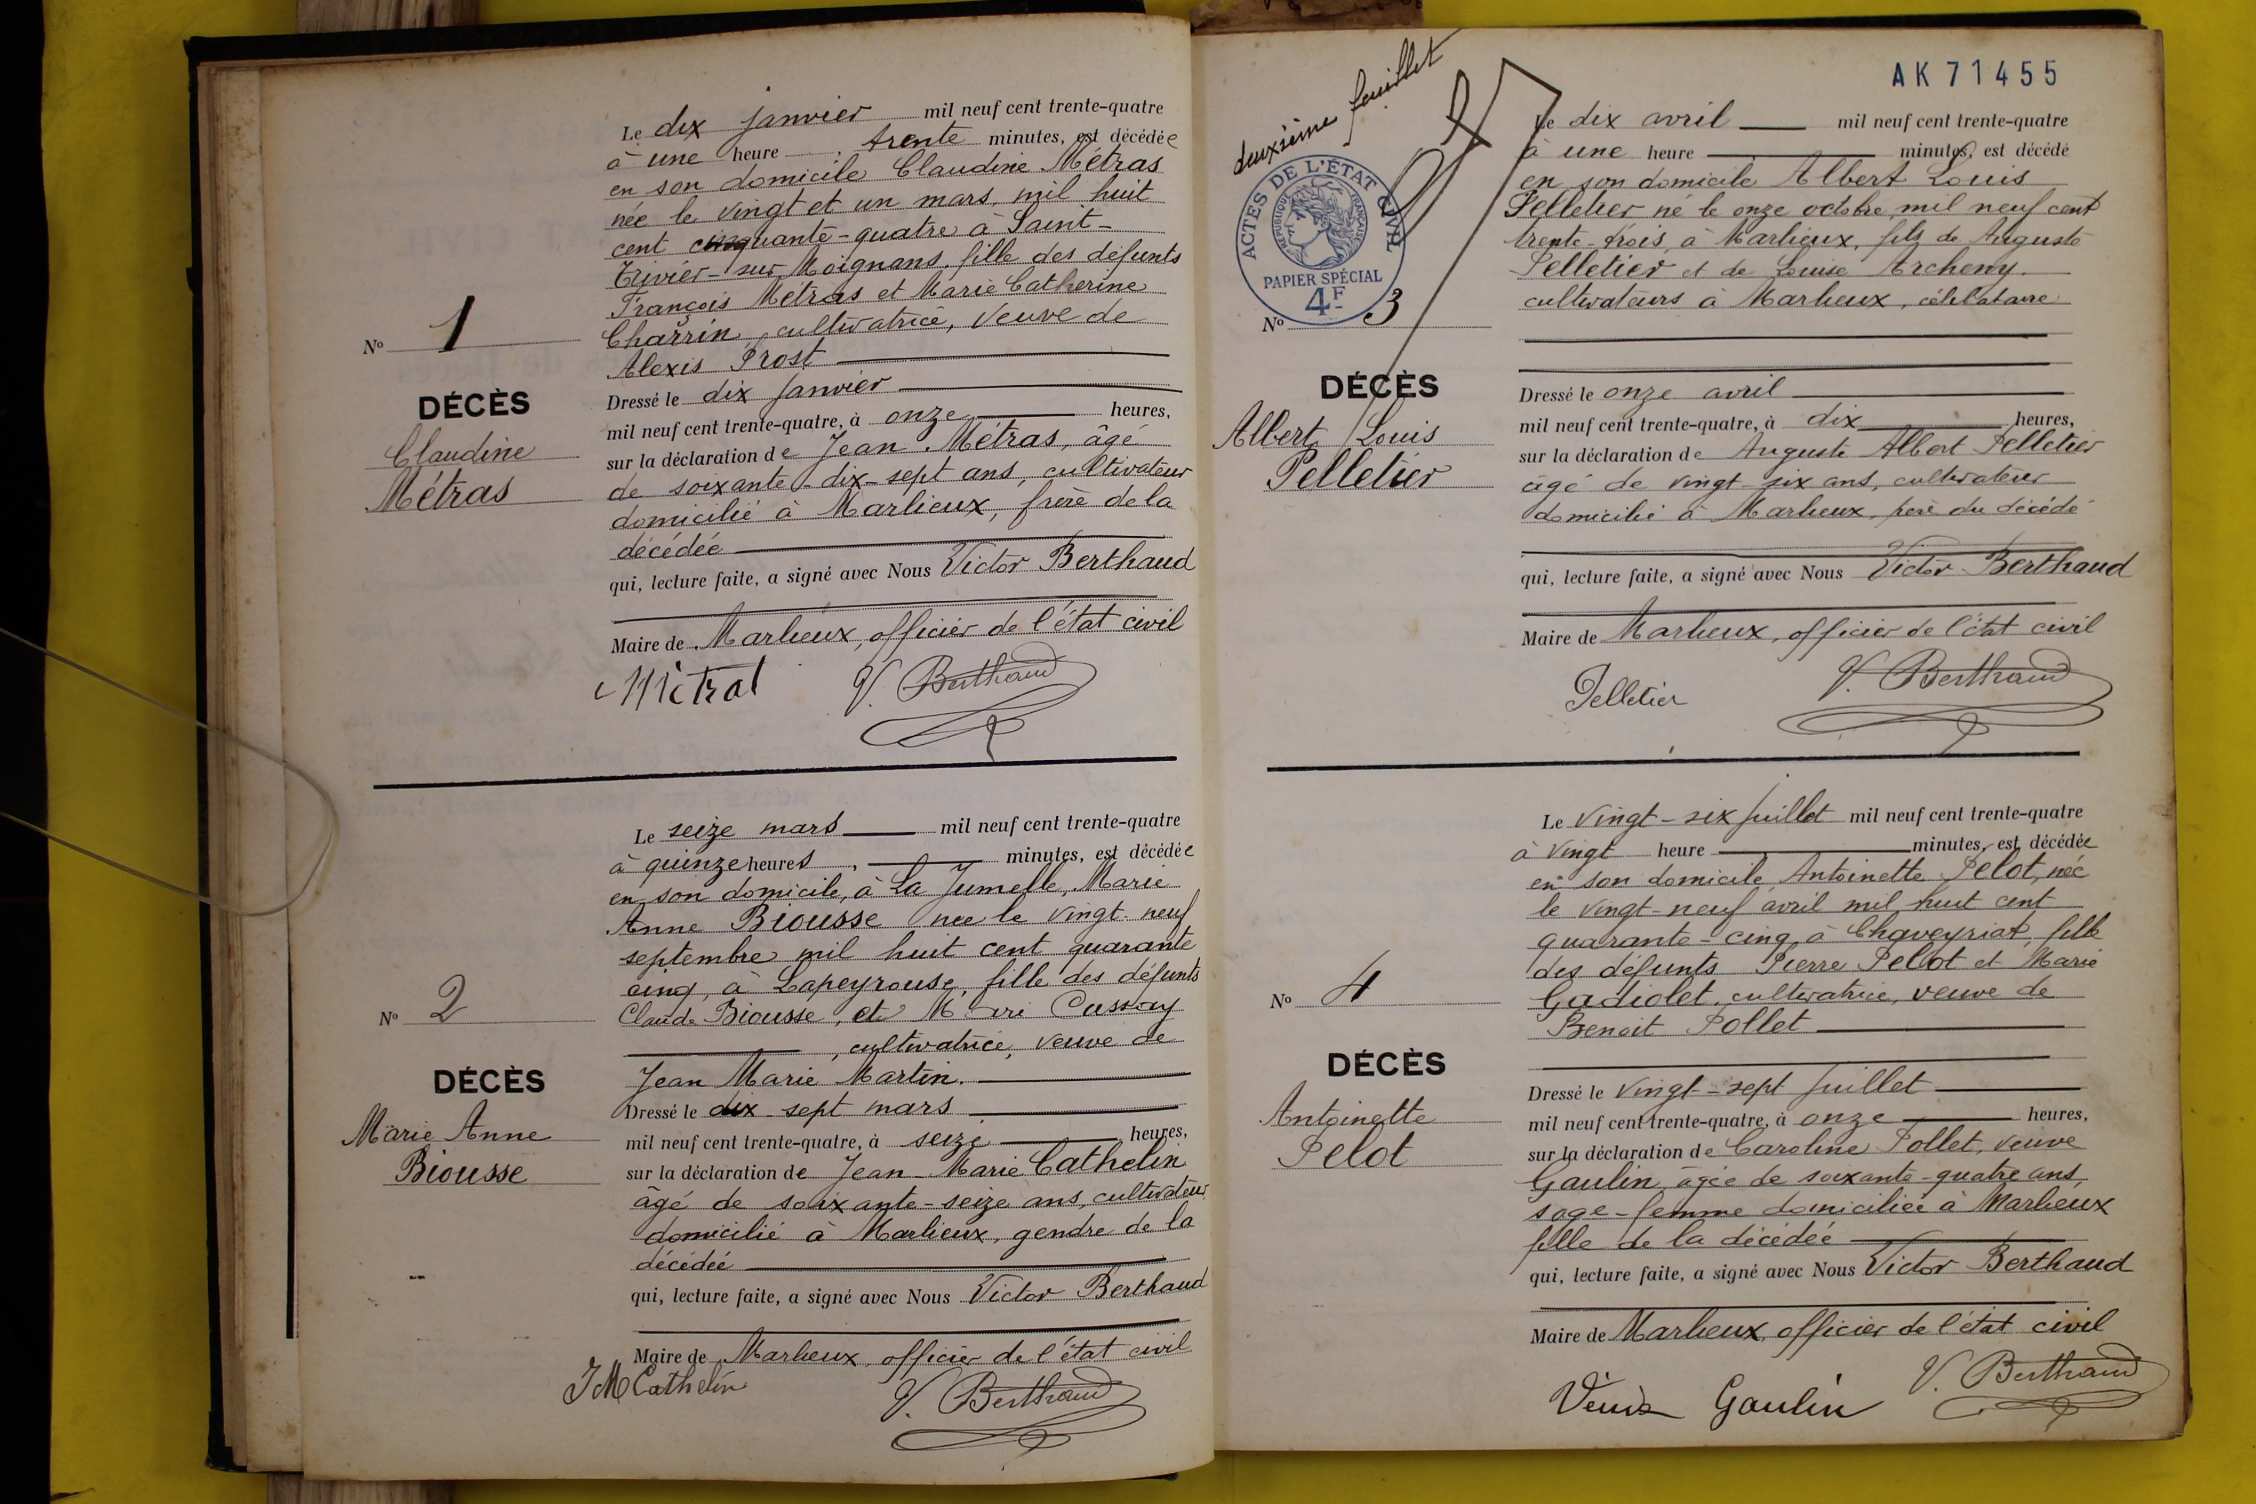 Le dix janvier mil neuf cent trente-quatre
à une heure, trente minutes, est décédée
en son domicile Claudine Métras
née le vingt et un mars, mil huit
cent cinquante-quatre à Saint-
Trivier-sur-Moignans, fille des défunts
François Métras et Marie Catherine
Charrin, cultivatrice, veuve de
Alexis Prost
Nº 1
DÉCÈS
Claudine
Métras
Dressé le dix janvier
mil neuf cent trente-quatre, à onze heures,
sur la déclaration de Jean Métras, âgé
de soixante-dix-sept ans, cultivateur
domicilié à Marlieux, frère de la
décédée
qui, lecture faite, a signé avec Nous Victor Berthaud
Maire de Marlieux, officier de l'état civil
V. Berthaud
Le seize mars mil neuf cent trente-quatre
à quinze heures, minutes, est décédée
en son domicile, à La Jumelle, Marie
Anne Biousse née le vingt-neuf
septembre mil huit cent quarante
cinq, à Lapeyrouse, fille des défunts
Claude Biousse, et Marie
, cultivatrice, veuve de
Jean Marie Martin.
Nº 2
DÉCÈS
Marie Anne
Biousse
Dressé le dix-sept mars
mil neuf cent trente-quatre, à seize heures,
sur la déclaration de Jean-Marie Cathelin
âgé de soixante-seize ans, cultivateur
domicilié à Marlieux, gendre de la
décédée
qui, lecture faite, a signé avec Nous Victor Berthaud
Maire de Marlieux, officier de l'état civil
JM Cathelin V. Berthaud
AK 71455
deuxième feuillet
ACTES DE L'ÉTAT CIVIL
RÉPUBLIQUE FRANÇAISE
PAPIER SPÉCIAL
4F
Le dix avril mil neuf cent trente-quatre
à une heure minutes, est décédé
en son domicile Albert Louis
Pelletier né le onze octobre mil neuf cent
trente-trois, à Marlieux, fils de Auguste
Pelletier et de Louise Archeny.
cultivateurs à Marlieux, célibataire
Nº 3
DÉCÈS
Albert Louis
Pelletier
Dressé le onze avril
mil neuf cent trente-quatre, à dix heures,
sur la déclaration de Auguste Albert Pelletier
âgé de vingt-six ans, cultivateur
domicilié à Marlieux, père du décédé
qui, lecture faite, a signé avec Nous Victor Berthaud
Maire de Marlieux, officier de l'état civil
Pelletier V. Berthaud
Le vingt-six juillet mil neuf cent trente-quatre
à vingt heure minutes, est décédée
en son domicile Antoinette Pelot, née
le vingt-neuf avril mil huit cent
quarante-cinq à Chaveyriat, fille
des défunts Pierre Pelot et Marie
Gadiolet, cultivatrice, veuve de
Benoit Pollet
Nº 4
DÉCÈS
Antoinette
Pelot
Dressé le vingt-sept juillet
mil neuf cent trente-quatre, à onze heures,
sur la déclaration de Caroline Pollet, veuve
Gaulin, âgée de soixante-quatre ans,
sage-femme domiciliée à Marlieux
fille de la décédée
qui, lecture faite, a signé avec Nous Victor Berthaud
Maire de Marlieux, officier de l'état civil
Gaulin V. Berthaud